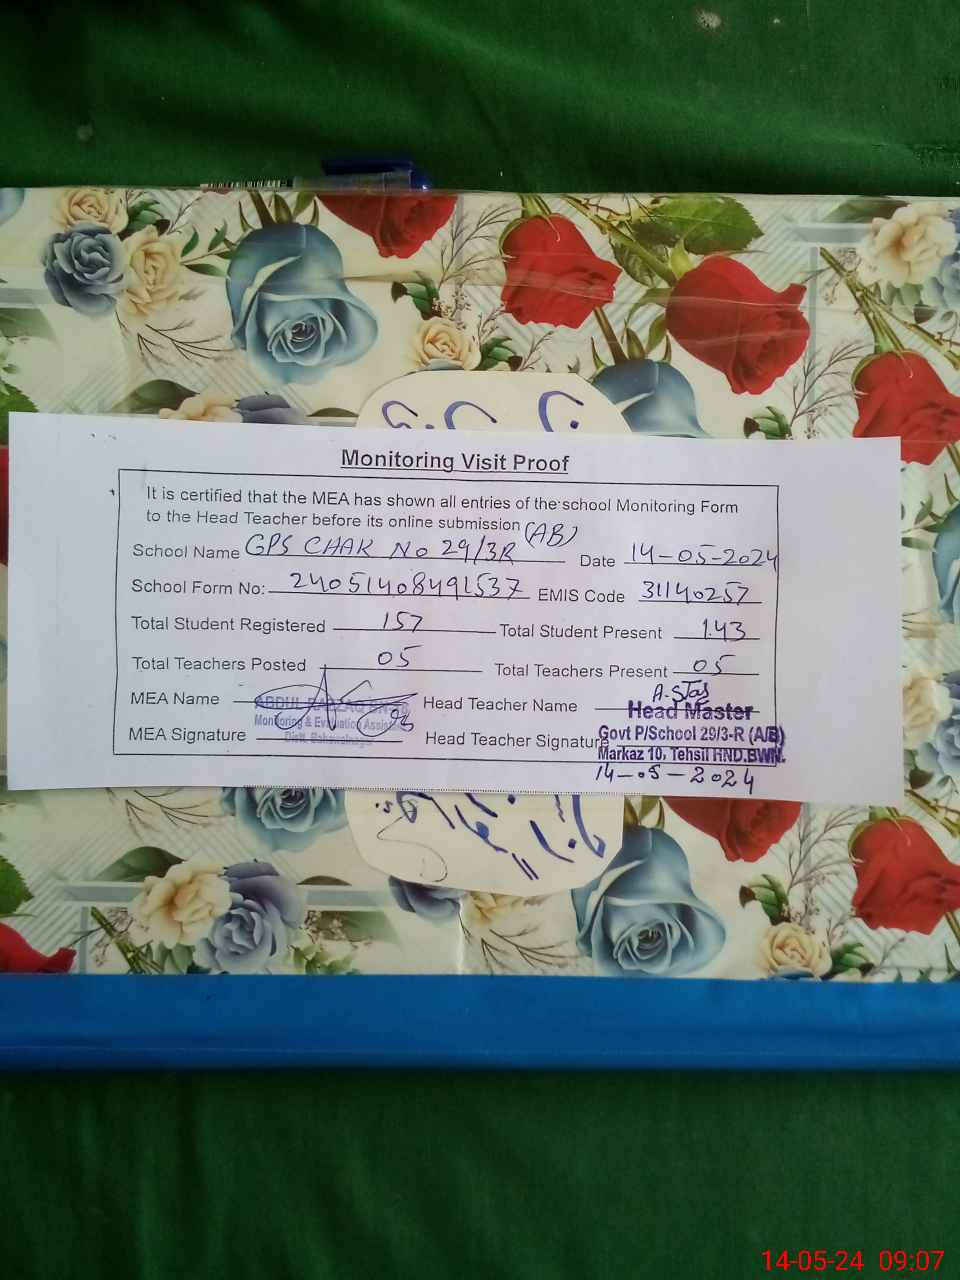 Monitoring Visit Proof
It is certified that the MEA has shown all entries of the school Monitoring Form
to the Head Teacher before its online submission (AB)
School Name GPS CHAK No 29/3R Date 14-05-2024
School Form No: 24051408491537 EMIS Code 31140257
Total Student Registered 157 Total Student Present 143
Total Teachers Posted 05 Total Teachers Present 05
MEA Name ABDUL RAZZAQ Head Teacher Name Head Master
Monitoring & Evaluation Assistant
MEA Signature Distt. Bahawalnagar Head Teacher Signature Govt P/School 29/3-R (A/B)
Markaz 10, Tehsil HND.BWN.
14-05-2024
14-05-24 09:07